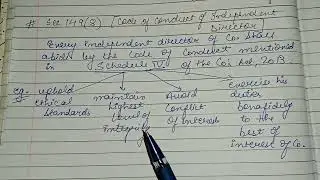 # Sec 149(8) (Code of conduct of Independent
Director)
Every independent director of Co. shall
abide by the Code of Conduct mentioned
in Schedule IV of the Co's Act, 2013
eg. uphold maintain Avoid exercise his
ethical highest Conflict duties
Standards level of of Interest bonafidely
integrity to the
best of
interest of Co.